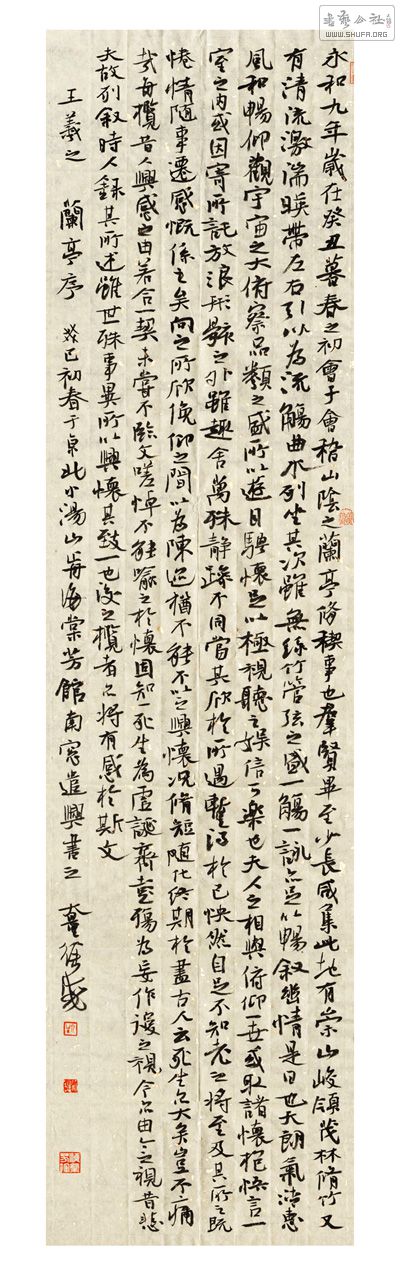 書藝公社
WWW.SHUFA.ORG
永和九年歲在癸丑暮春之初會于會稽山陰之蘭亭脩稧事也羣賢畢至少長咸集此地有崇山峻領茂林脩竹又
有清流激湍暎帶左右引以為流觴曲水列坐其次雖無絲竹管弦之盛一觴一詠亦足以暢叙幽情是日也天朗氣清惠
風和暢仰觀宇宙之大俯察品類之盛所以遊目騁懷足以極視聽之娛信可樂也夫人之相與俯仰一世或取諸懷抱悟言一
室之內或因寄所託放浪形骸之外雖趣舍萬殊静躁不同當其欣於所遇蹔得於己怏然自足不知老之將至及其所之既
惓情隨事遷感慨係之矣向之所欣俛仰之間以為陳迹猶不能不以之興懷况脩短隨化終期於盡古人云死生亦大矣豈不痛
哉每攬昔人興感之由若合一契未嘗不臨文嗟悼不能喻之於懷固知一死生為虛誕齊彭殤為妄作後之視今亦由今之視昔悲
夫故列叙時人錄其所述雖世殊事異所以興懷其致一也後之攬者亦將有感於斯文
王羲之 蘭亭序 癸巳初春于京北小湯山海棠芳館南窓遣興書之